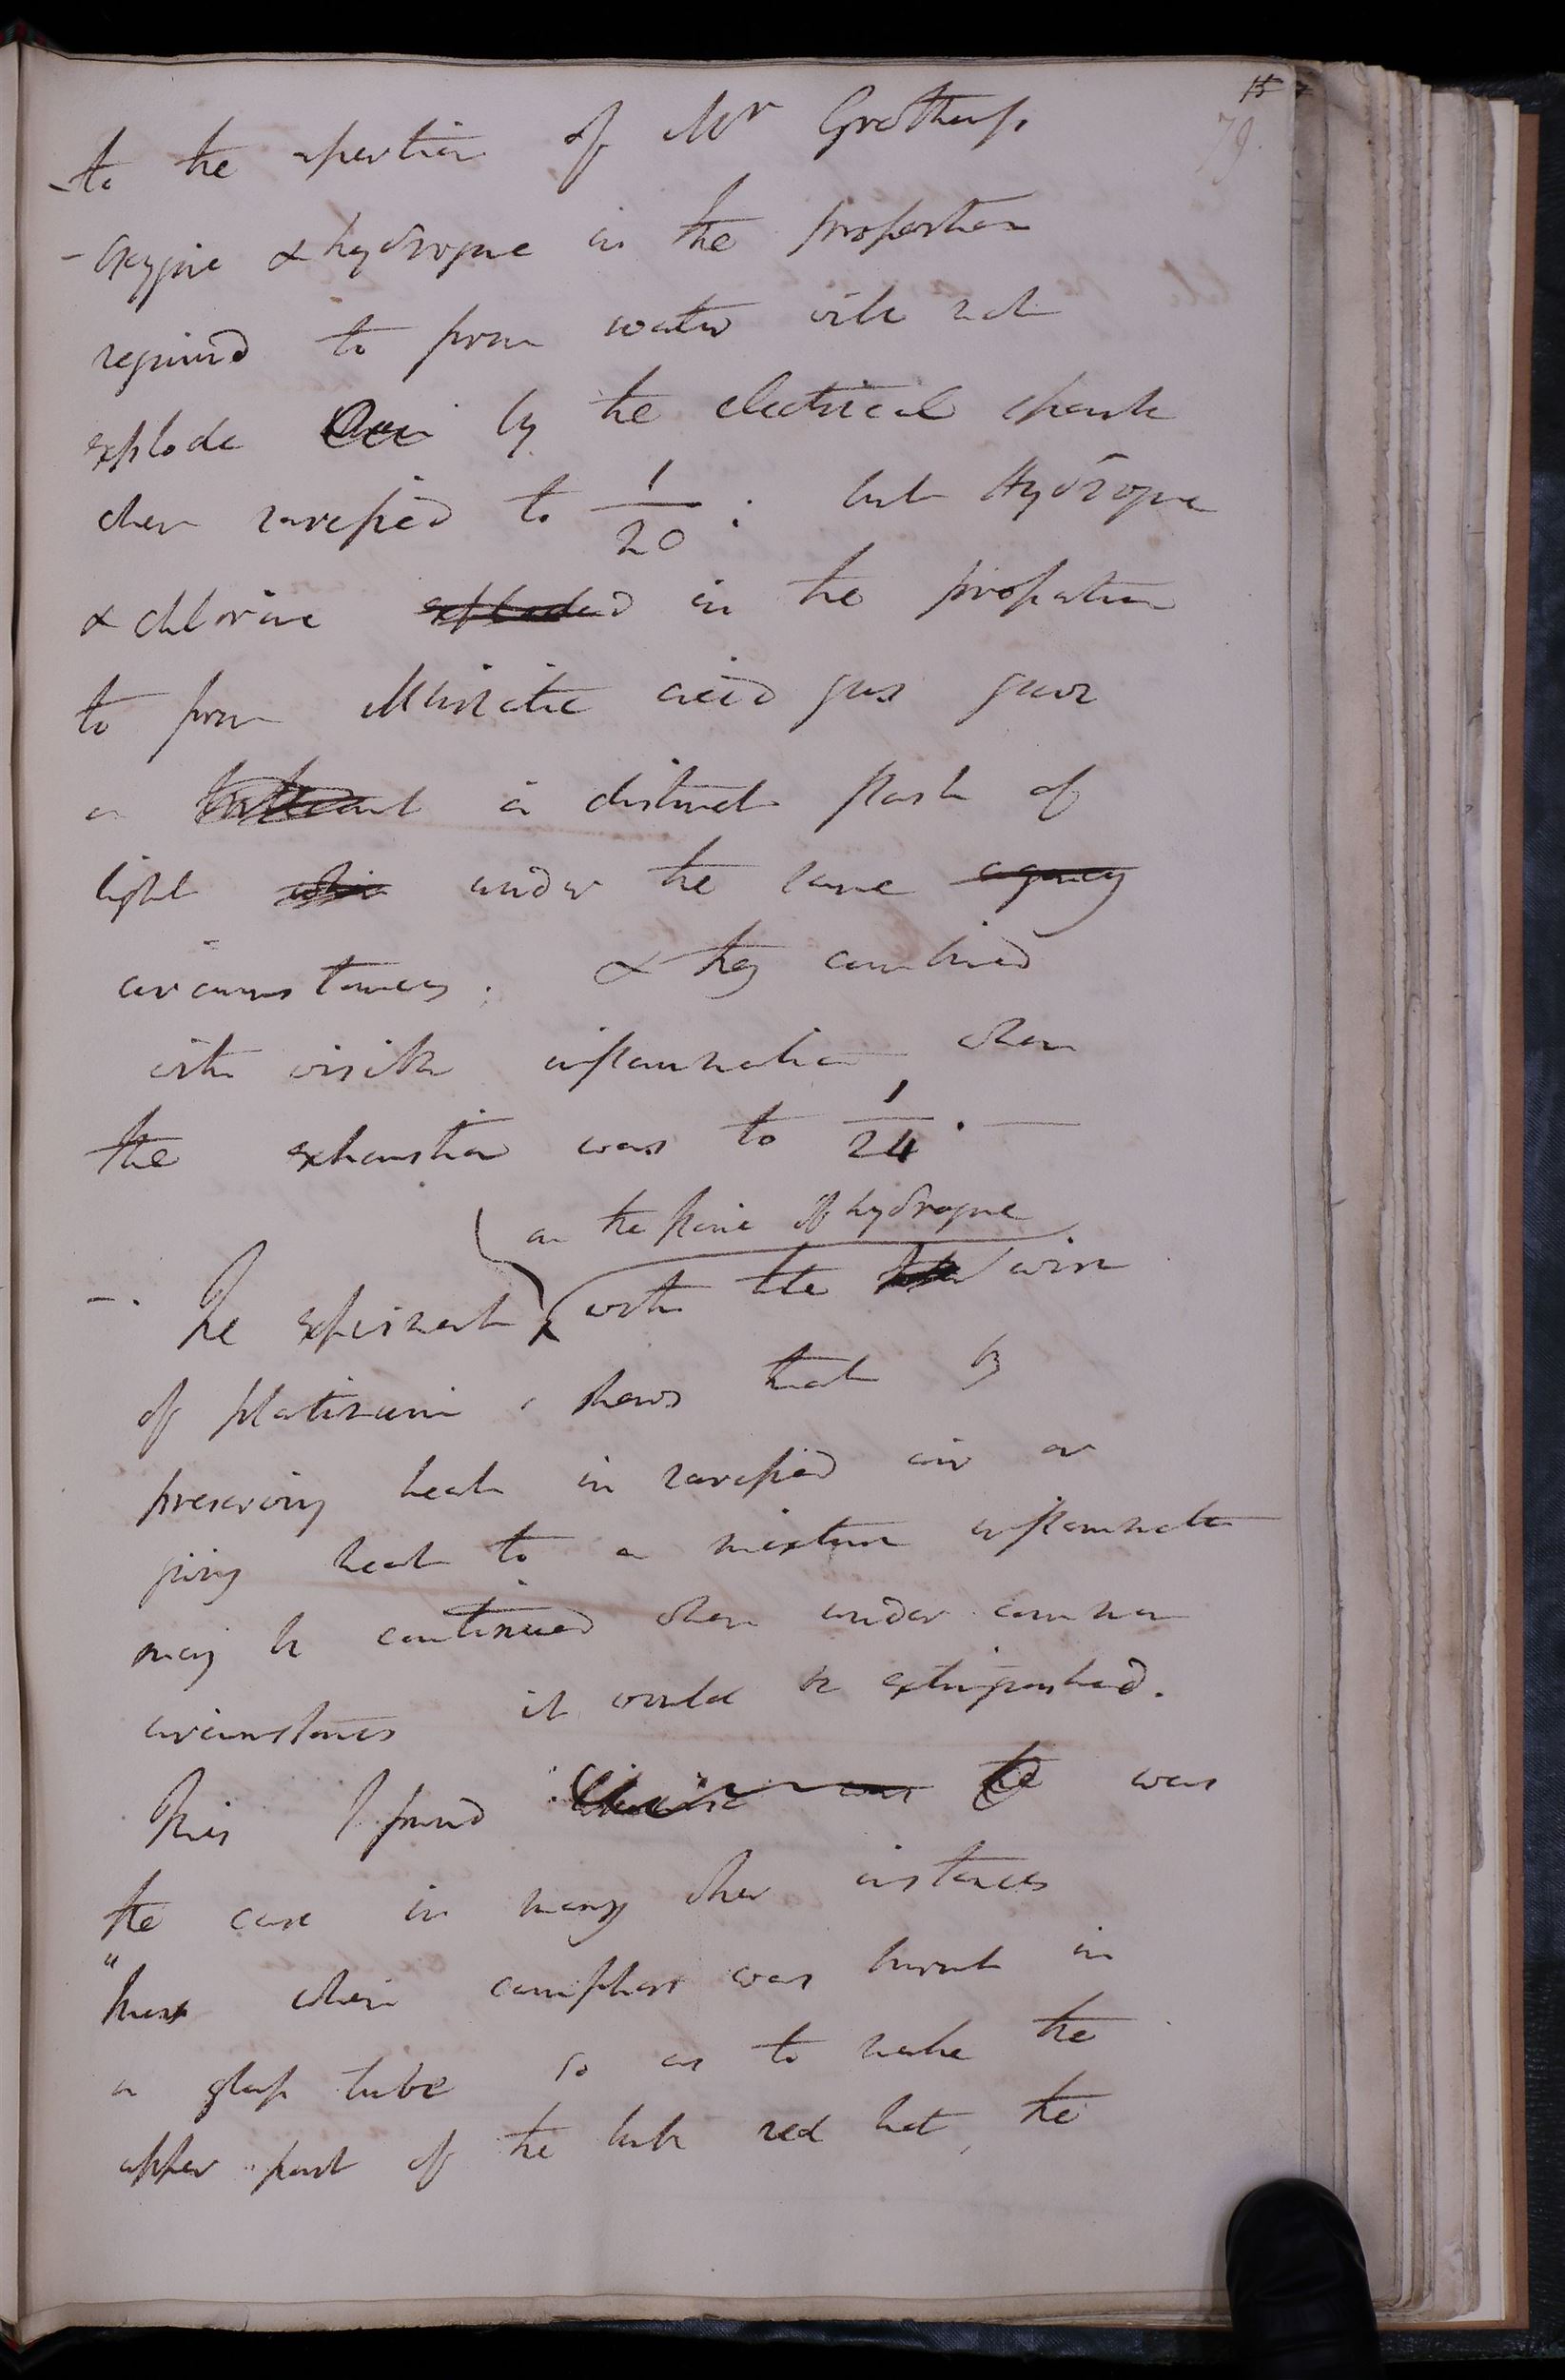 15
79.
- to the assertion of Mr Grotthuss.
- Oxygene & hydrogene in the proportion
required to form water will not
explode by the electrical spark
when rarefied to 1/20 : but Hydrogene
& chlorine exploded in the proportion
to form Muriatic acid gas gave
a brilliant a distinct flash of
light under the same agency
circumstances. & they combined
with visible inflammation when
the exhaustion was to 1/24. —
on the flame of hydrogene
-. The experiment with the wire
of platinum, shews that by
preserving heat in rarefied air or
giving heat to a mixture inflammation
may be continued when under common
circumstances it would be extinguished.
This I found was the was
the case in many other instances
"thus when camphor was burnt in
a glass tube so as to make the
upper part of the tube red hot, the